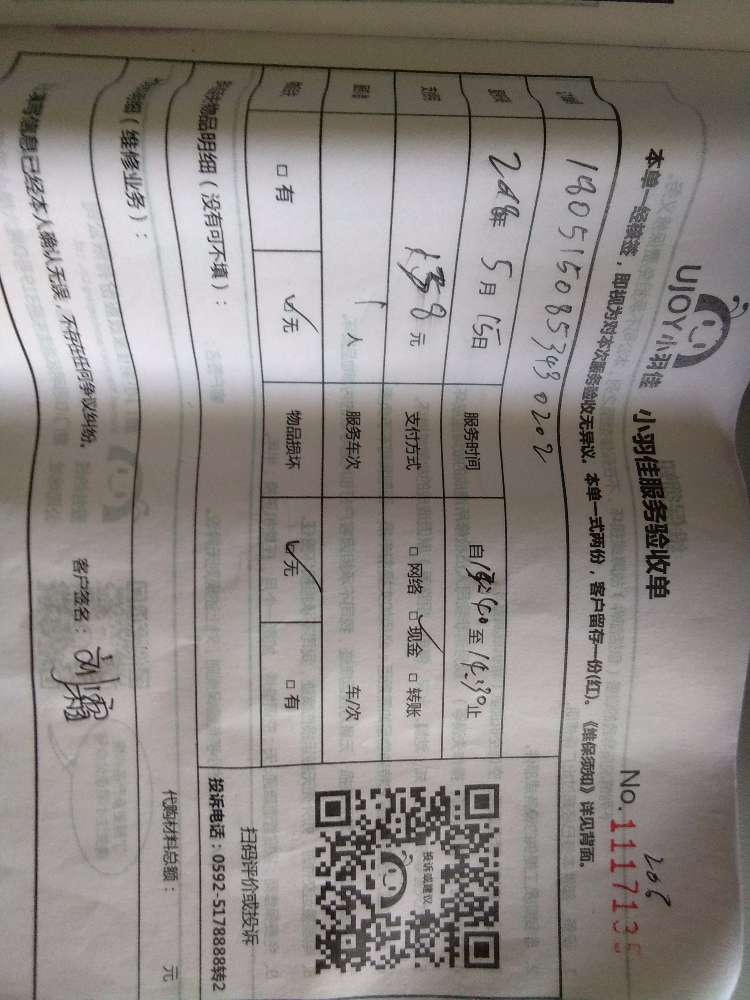 UJOY小羽佳
小羽佳服务验收单
206
No.1117135
本单一经接签，即视为对本次服务验收无异议。本单一式两份，客户留存一份(红)。《维保须知》详见背面。
180515085343 0202
2018年 5月 15日 服务时间 至 14:30止
8元 支付方式 □ 网络 □✓现金 □ 转账
1人 服务车次 车/次
□ 有 ✓无 物品损坏 ✓无 □ 有
投诉或建议
扫码评价或投诉
物品明细（没有可不填）：
投诉电话：0592-5178888转2
（维修业务）：
代购材料总额： 元
信息已经本人确认无误，不存在任何争议纠纷。
客户签名：